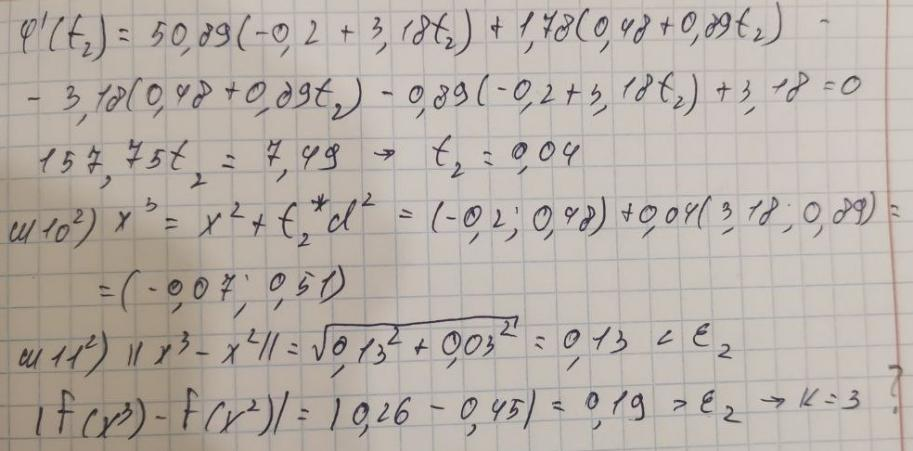 φ'(t₂) = 50,89(-0,2 + 3,18t₂) + 1,78(0,48 + 0,89t₂) -
- 3,18(0,48 + 0,89t₂) - 0,89(-0,2 + 3,18t₂) + 3,18 = 0
157,75t₂ = 7,49 → t₂ = 0,04
ш10²) x³ = x² + t₂*d² = (-0,2; 0,48) + 0,04(3,18; 0,89) =
= (-0,07; 0,51)
ш11²) ||x³ - x²|| = √0,13² + 0,03² = 0,13 < ε₂
|f(x³) - f(x²)| = |0,26 - 0,45| = 0,19 > ε₂ → K = 3 ?